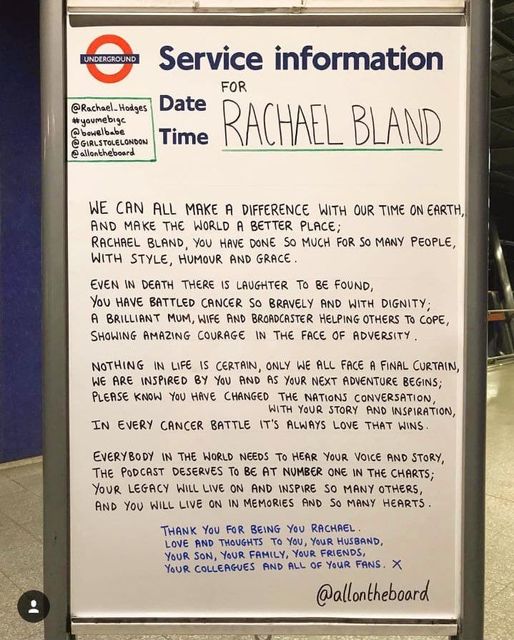 UNDERGROUND
Service information
FOR
Date
Time
RACHAEL BLAND
@Rachael_Hodges
#youmebigc
@bowelbabe
@GIRLSTOLELONDON
@allontheboard
WE CAN ALL MAKE A DIFFERENCE WITH OUR TIME ON EARTH,
AND MAKE THE WORLD A BETTER PLACE;
RACHAEL BLAND, YOU HAVE DONE SO MUCH FOR SO MANY PEOPLE,
WITH STYLE, HUMOUR AND GRACE.
EVEN IN DEATH THERE IS LAUGHTER TO BE FOUND,
YOU HAVE BATTLED CANCER SO BRAVELY AND WITH DIGNITY;
A BRILLIANT MUM, WIFE AND BROADCASTER HELPING OTHERS TO COPE,
SHOWING AMAZING COURAGE IN THE FACE OF ADVERSITY.
NOTHING IN LIFE IS CERTAIN, ONLY WE ALL FACE A FINAL CURTAIN,
WE ARE INSPIRED BY YOU AND AS YOUR NEXT ADVENTURE BEGINS;
PLEASE KNOW YOU HAVE CHANGED THE NATIONS CONVERSATION,
WITH YOUR STORY AND INSPIRATION,
IN EVERY CANCER BATTLE IT'S ALWAYS LOVE THAT WINS.
EVERYBODY IN THE WORLD NEEDS TO HEAR YOUR VOICE AND STORY,
THE PODCAST DESERVES TO BE AT NUMBER ONE IN THE CHARTS;
YOUR LEGACY WILL LIVE ON AND INSPIRE SO MANY OTHERS,
AND YOU WILL LIVE ON IN MEMORIES AND SO MANY HEARTS.
THANK YOU FOR BEING YOU RACHAEL.
LOVE AND THOUGHTS TO YOU, YOUR HUSBAND,
YOUR SON, YOUR FAMILY, YOUR FRIENDS,
YOUR COLLEAGUES AND ALL OF YOUR FANS. X
@allontheboard